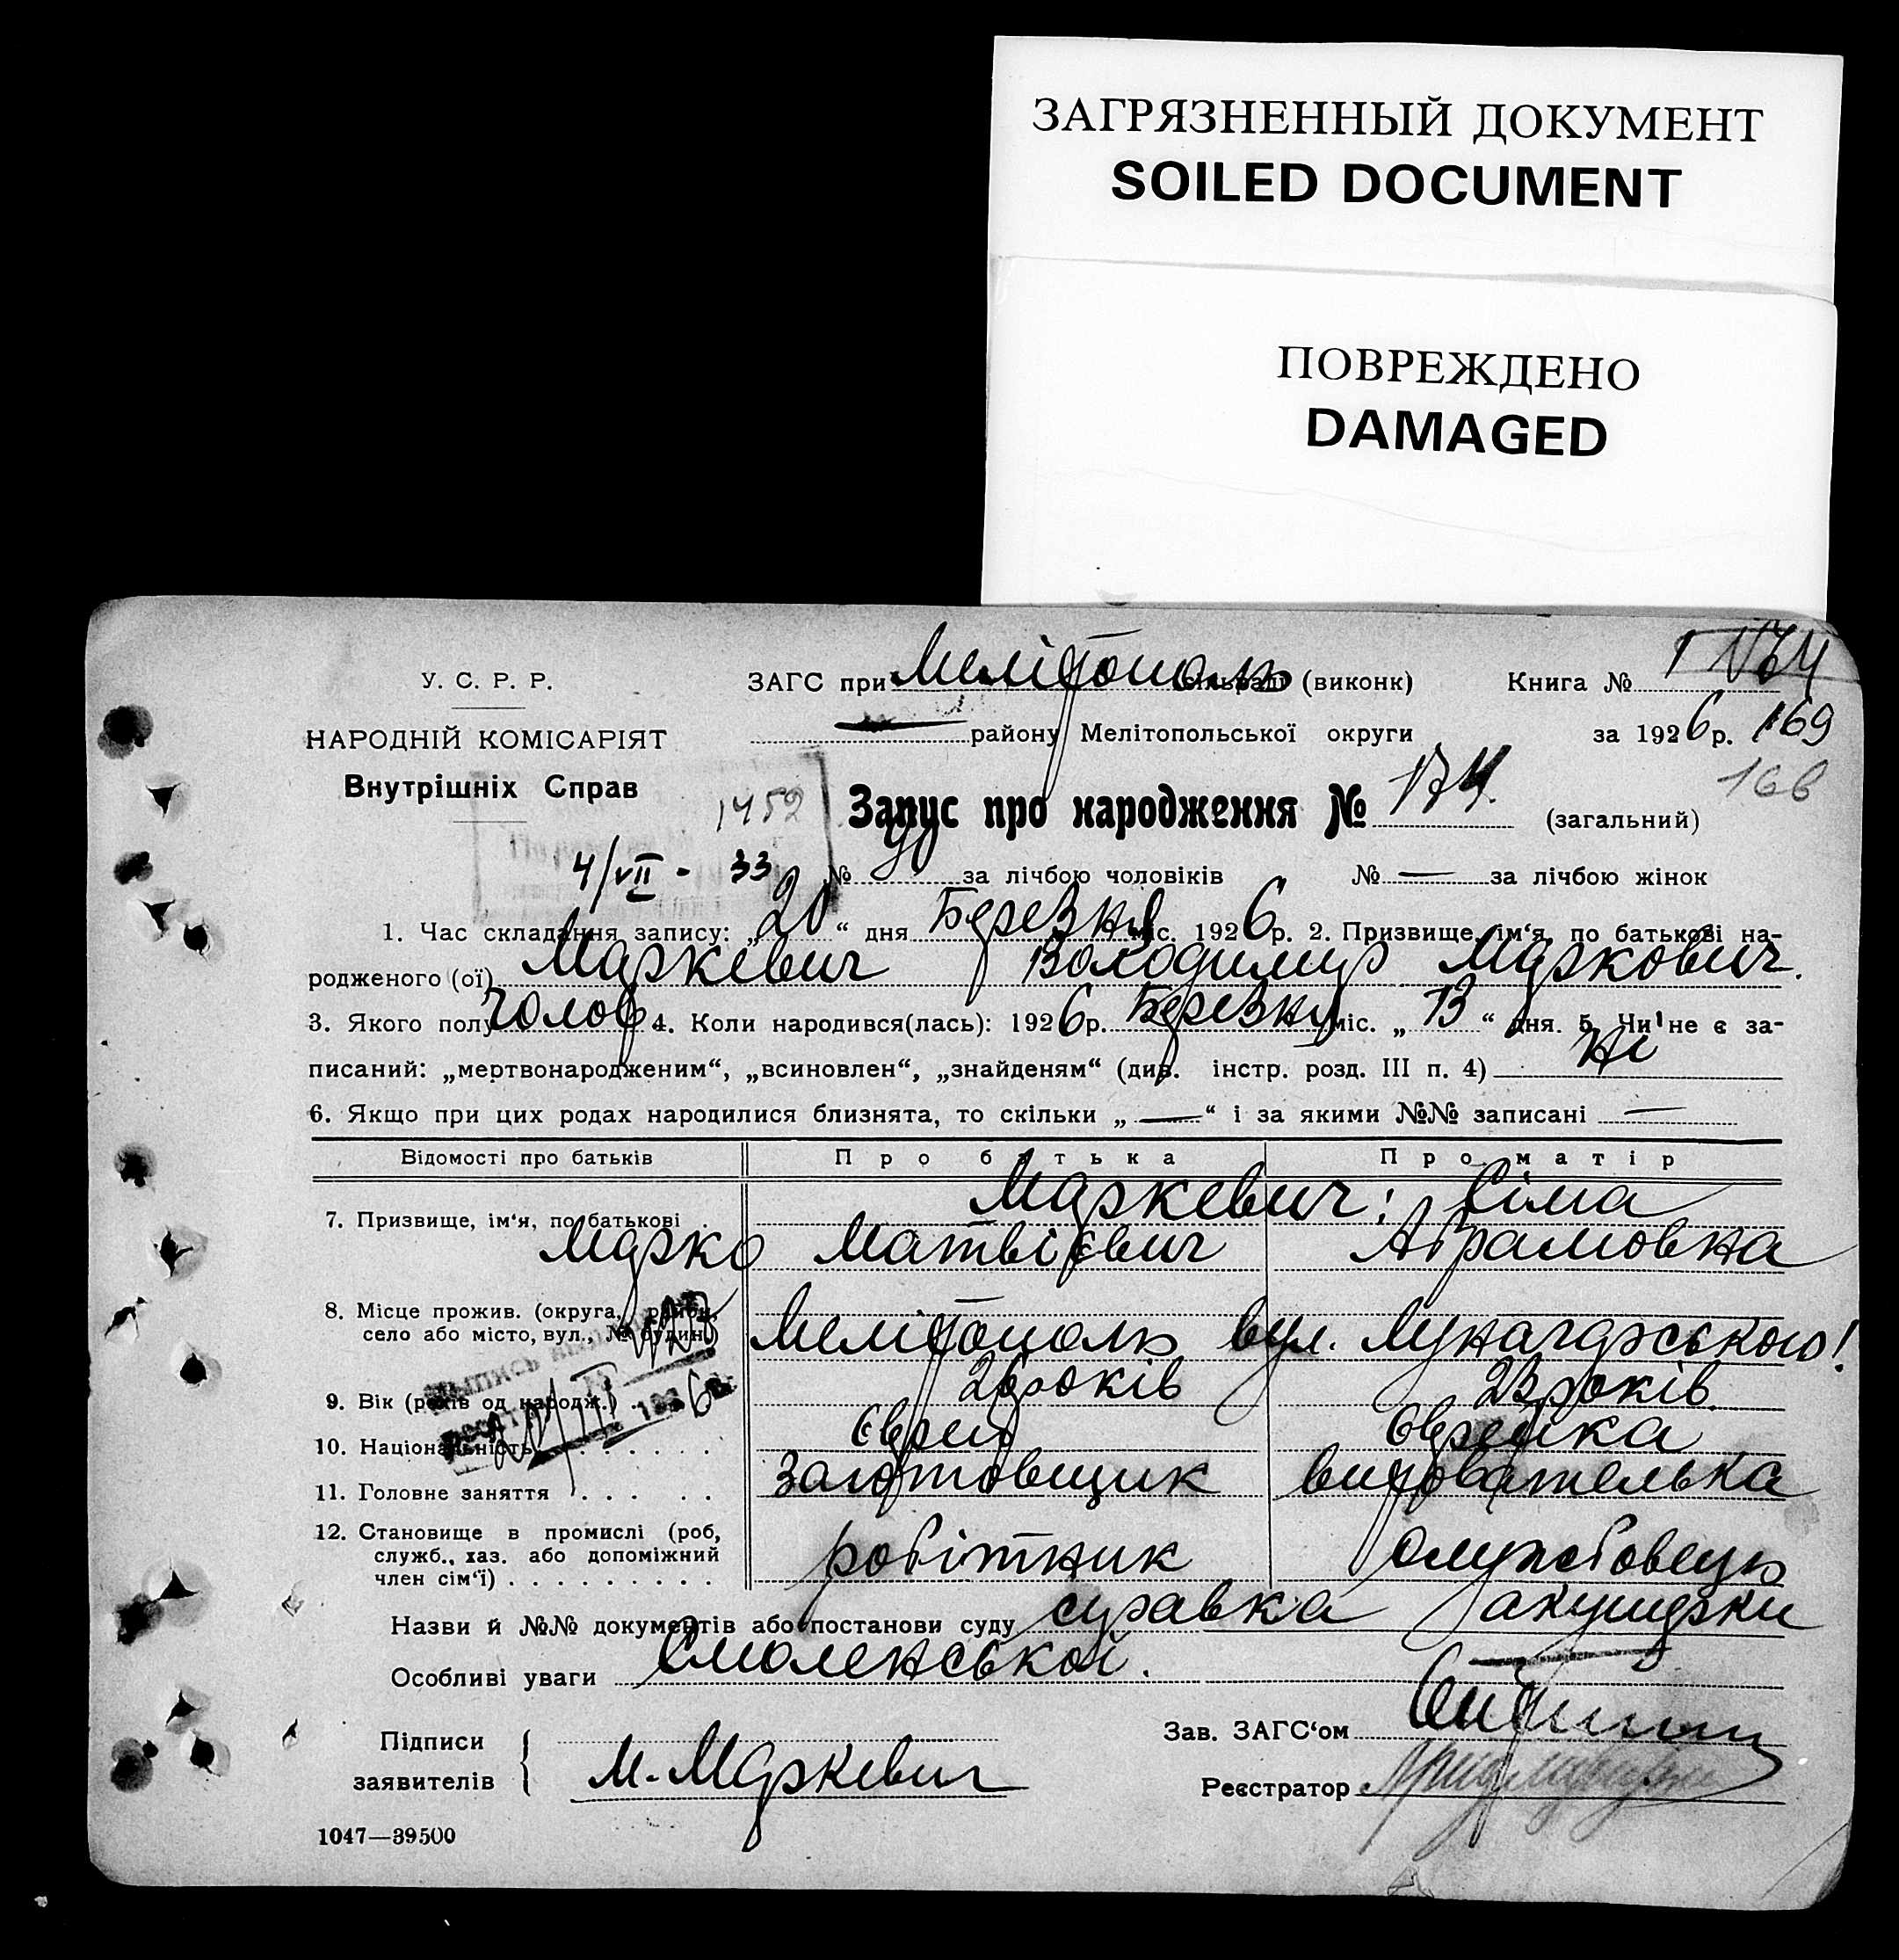 ЗАГРЯЗНЕННЫЙ ДОКУМЕНТ
SOILED DOCUMENT
ПОВРЕЖДЕНО
DAMAGED
У. С. Р. Р.
НАРОДНІЙ КОМІСАРІЯТ
Внутрішніх Справ
ЗАГС при Мелітополь сільраді (виконк)
району Мелітопольської округи
Книга № 1
за 1926 р. 169
166
1452
4/VII - 33
Запис про народження № 174. (загальний)
№ 90 за лічбою чоловіків № — за лічбою жінок
1. Час складання запису: „20“ дня Березня міс. 1926 р. 2. Призвище, ім‘я, по батькові на-
родженого (ої) Маркевич Володимир Маркович.
3. Якого полу чолов. 4. Коли народився(лась): 1926 р. Березня міс. „13“ дня. 5. Чи не є за-
писаний: „мертвонародженим“, „всиновлен“, „знайденям“ (див. інстр. розд. III п. 4) Ні
6. Якщо при цих родах народилися близнята, то скільки „—“ і за якими №№ записані —
Відомості про батьків Про батька Про матір
7. Призвище, ім‘я, по батькові . Маркевич: Сіма
Марко Матвієвич Абрамовна
8. Місце прожив. (округа, район,
село або місто, вул., № будин.) Мелітополь вул. Луначарського!
9. Вік (років од народж.) . 26 років 23 років.
10. Національність . . . . . . Єврей Єврейка
11. Головне заняття . . . . . Заготовщик вихователька
12. Становище в промислі (роб,
служб., хаз. або допоміжний
член сім‘ї) . . . . . . . . . робітник службовець
Назви й №№ документів або постанови суду справка акушерки
Особливі уваги Смоленської.
Підписи
заявителів М. Маркевич
Зав. ЗАГС‘ом
Реєстратор
1047—39500